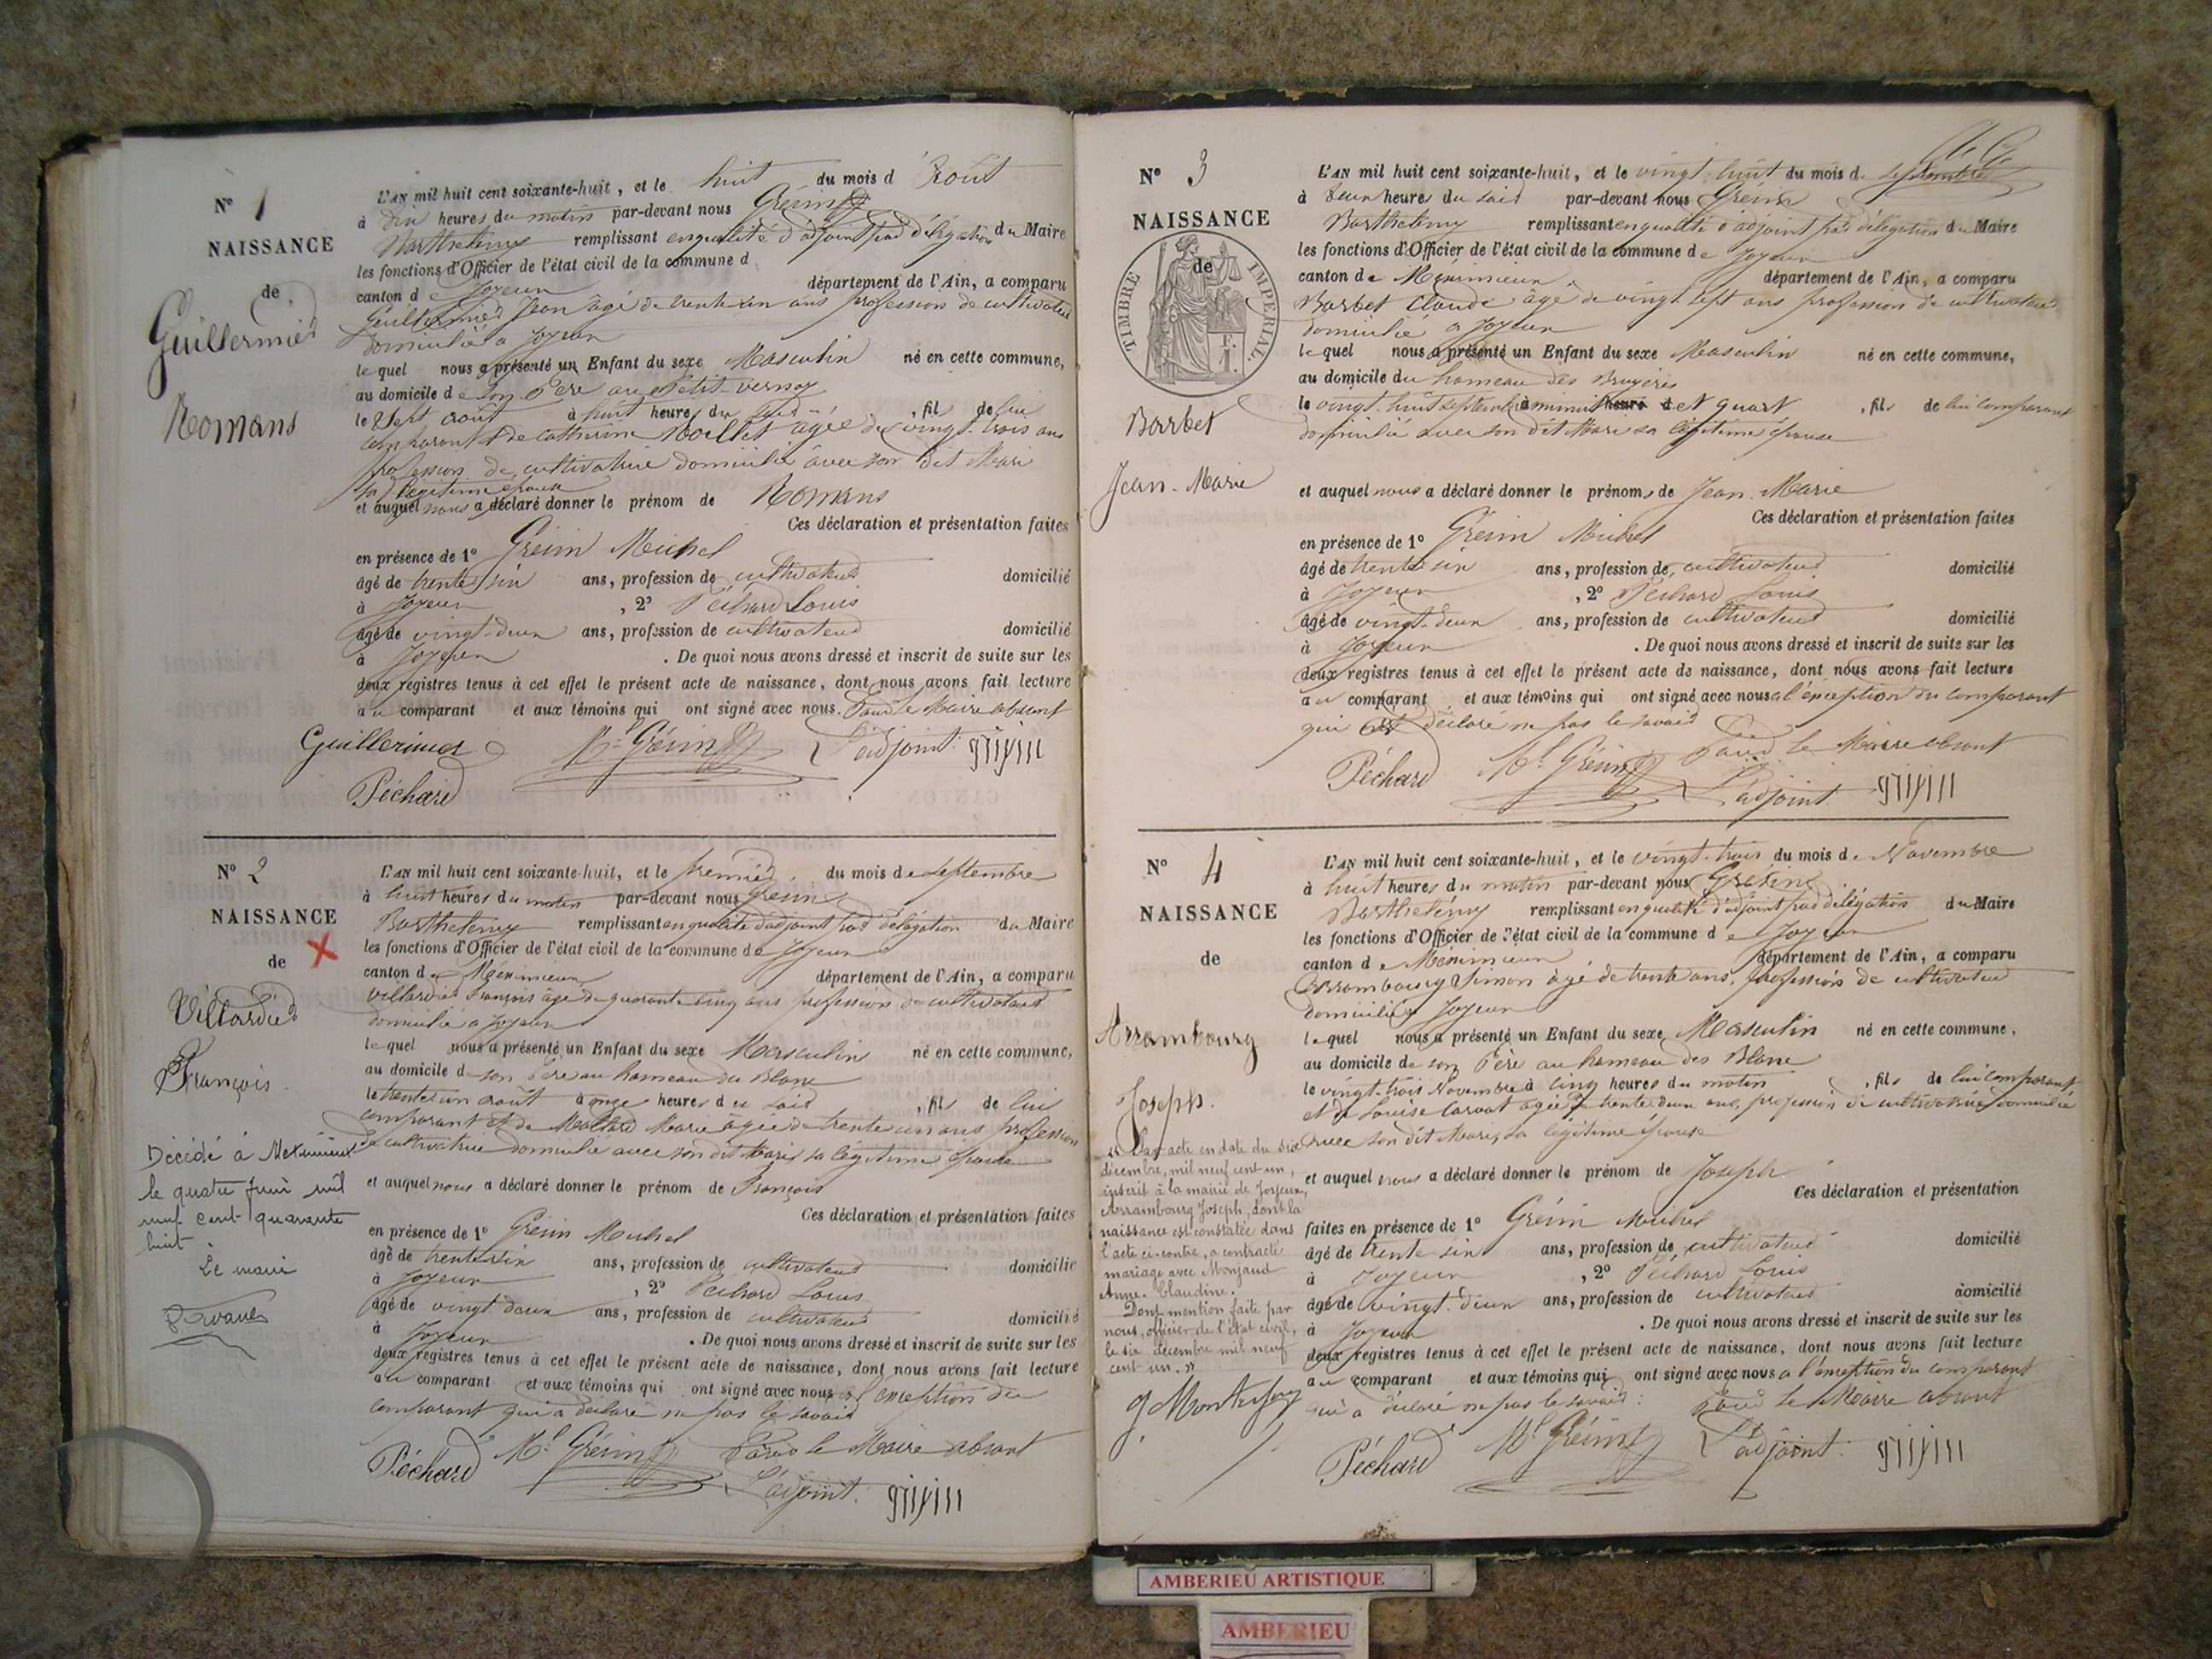 N° 1
NAISSANCE
de
Guillermier
Romans
L'AN mil huit cent soixante-huit, et le huit du mois d'Août
à dix heures du matin par-devant nous Grésin
Barthelemy remplissant en qualité d'adjoint par délégation du Maire
les fonctions d'Officier de l'état civil de la commune d
canton de Joyeux département de l'Ain, a comparu
Guillermier Jean âgé de trente six ans profession de cultivateur
domicilié à Joyeux
lequel nous a présenté un Enfant du sexe Masculin né en cette commune,
au domicile de son Père au Petit-vernay
le Sept août à huit heures du soir, fil de lui
comparant et de Catherine Mollet âgée de vingt-trois ans
profession de cultivatrice domiciliée avec son dit Mari
sa légitime épouse
et auquel nous a déclaré donner le prénom de Romans
Ces déclaration et présentation faites
en présence de 1° Grésin Michel
âgé de trente six ans, profession de cultivateur domicilié
à Joyeux, 2° Péchard Louis
âgé de vingt-deux ans, profession de cultivateur domicilié
à Joyeux. De quoi nous avons dressé et inscrit de suite sur les
deux registres tenus à cet effet le présent acte de naissance, dont nous avons fait lecture
au comparant et aux témoins qui ont signé avec nous. Pour le Maire absent
Guillermier Ml Grésin L'adjoint
Péchard
N° 2
NAISSANCE
de
Villardier
François
Décédé à Meximieux
le quatre juin mil
neuf cent quarante
huit
Le maire
L'AN mil huit cent soixante-huit, et le premier du mois de septembre
à huit heures du matin par-devant nous Grésin
Barthelemy remplissant en qualité d'adjoint par délégation du Maire
les fonctions d'Officier de l'état civil de la commune de Joyeux
canton de Méximieux département de l'Ain, a comparu
Villardier François âgé de quarante cinq ans profession de cultivateur
domicilié à Joyeux
lequel nous a présenté un Enfant du sexe Masculin né en cette commune,
au domicile de son Père au hameau du Blanc
le trente un août à onze heures du soir, fil de lui
comparant et de Mollard Marie âgée de trente un ans profession
de cultivatrice domiciliée avec son dit Mari sa légitime épouse
et auquel nous a déclaré donner le prénom de François
Ces déclaration et présentation faites
en présence de 1° Grésin Michel
âgé de trente six ans, profession de cultivateur domicilié
à Joyeux, 2° Péchard Louis
âgé de vingt deux ans, profession de cultivateur domicilié
à Joyeux. De quoi nous avons dressé et inscrit de suite sur les
deux registres tenus à cet effet le présent acte de naissance, dont nous avons fait lecture
au comparant et aux témoins qui ont signé avec nous a l'exception du
comparant qui a déclaré ne pas le savoir
Péchard Ml Grésin Pour le Maire absent
L'adjoint.
N° 3
NAISSANCE
de
TIMBRE IMPERIAL
Barbet
Jean-Marie
L'AN mil huit cent soixante-huit, et le vingt-huit du mois de septembre
à deux heures du soir par-devant nous Grésin
Barthelemy remplissant en qualité d'adjoint par délégation du Maire
les fonctions d'Officier de l'état civil de la commune de Joyeux
canton de Meximieux département de l'Ain, a comparu
Barbet Claude âgé de vingt sept ans profession de cultivateur
domicilié à Joyeux
lequel nous a présenté un Enfant du sexe Masculin né en cette commune,
au domicile du hameau des Bruyères
le vingt-huit septembre à minuit heure d et quart, fils de lui comparant
domiciliée avec son dit Mari sa légitime épouse
et auquel nous a déclaré donner le prénoms de Jean-Marie
Ces déclaration et présentation faites
en présence de 1° Grésin Michel
âgé de trente six ans, profession de cultivateur domicilié
à Joyeux, 2° Péchard Louis
âgé de vingt-deux ans, profession de cultivateur domicilié
à Joyeux. De quoi nous avons dressé et inscrit de suite sur les
deux registres tenus à cet effet le présent acte de naissance, dont nous avons fait lecture
au comparant et aux témoins qui ont signé avec nous a l'exception du comparant
qui a déclaré ne pas le savoir
Péchard Ml Grésin Pour le Maire absent
L'adjoint
N° 4
NAISSANCE
de
Arrambourg
Joseph.
"Par acte en date du six
décembre, mil neuf cent un,
inscrit à la mairie de Joyeux,
Arrambourg Joseph, dont la
naissance est constatée dans
l'acte ci-contre, a contracté
mariage avec Monjaud
Anne-Claudine.
Dont mention faite par
nous, officier de l'état civil,
le six décembre mil neuf
cent un."
L'AN mil huit cent soixante-huit, et le vingt-trois du mois de Novembre
à huit heures du matin par-devant nous Grésin
Barthelémy remplissant en qualité d'adjoint par délégation du Maire
les fonctions d'Officier de l'état civil de la commune de Joyeux
canton de Méximieux département de l'Ain, a comparu
Arrambourg Simon âgé de trente ans, profession de cultivateur
domicilié à Joyeux
lequel nous a présenté un Enfant du sexe Masculin né en cette commune,
au domicile de son Père au hameau des Blanc
le vingt-trois Novembre à cinq heures du matin, fils de lui comparant
et de Louise Carvat âgée de trente-deux ans, profession de cultivatrice domiciliée
avec son dit Mari, sa légitime épouse
et auquel nous a déclaré donner le prénom de Joseph
Ces déclaration et présentation
faites en présence de 1° Grésin Michel
âgé de trente six ans, profession de cultivateur domicilié
à Joyeux, 2° Péchard Louis
âgé de vingt-deux ans, profession de cultivateur domicilié
à Joyeux. De quoi nous avons dressé et inscrit de suite sur les
deux registres tenus à cet effet le présent acte de naissance, dont nous avons fait lecture
au comparant et aux témoins qui ont signé avec nous a l'exception du comparant
qui a déclaré ne pas le savoir: Pour le Maire absent
Péchard Ml Grésin L'adjoint
AMBERIEU ARTISTIQUE
AMBERIEU